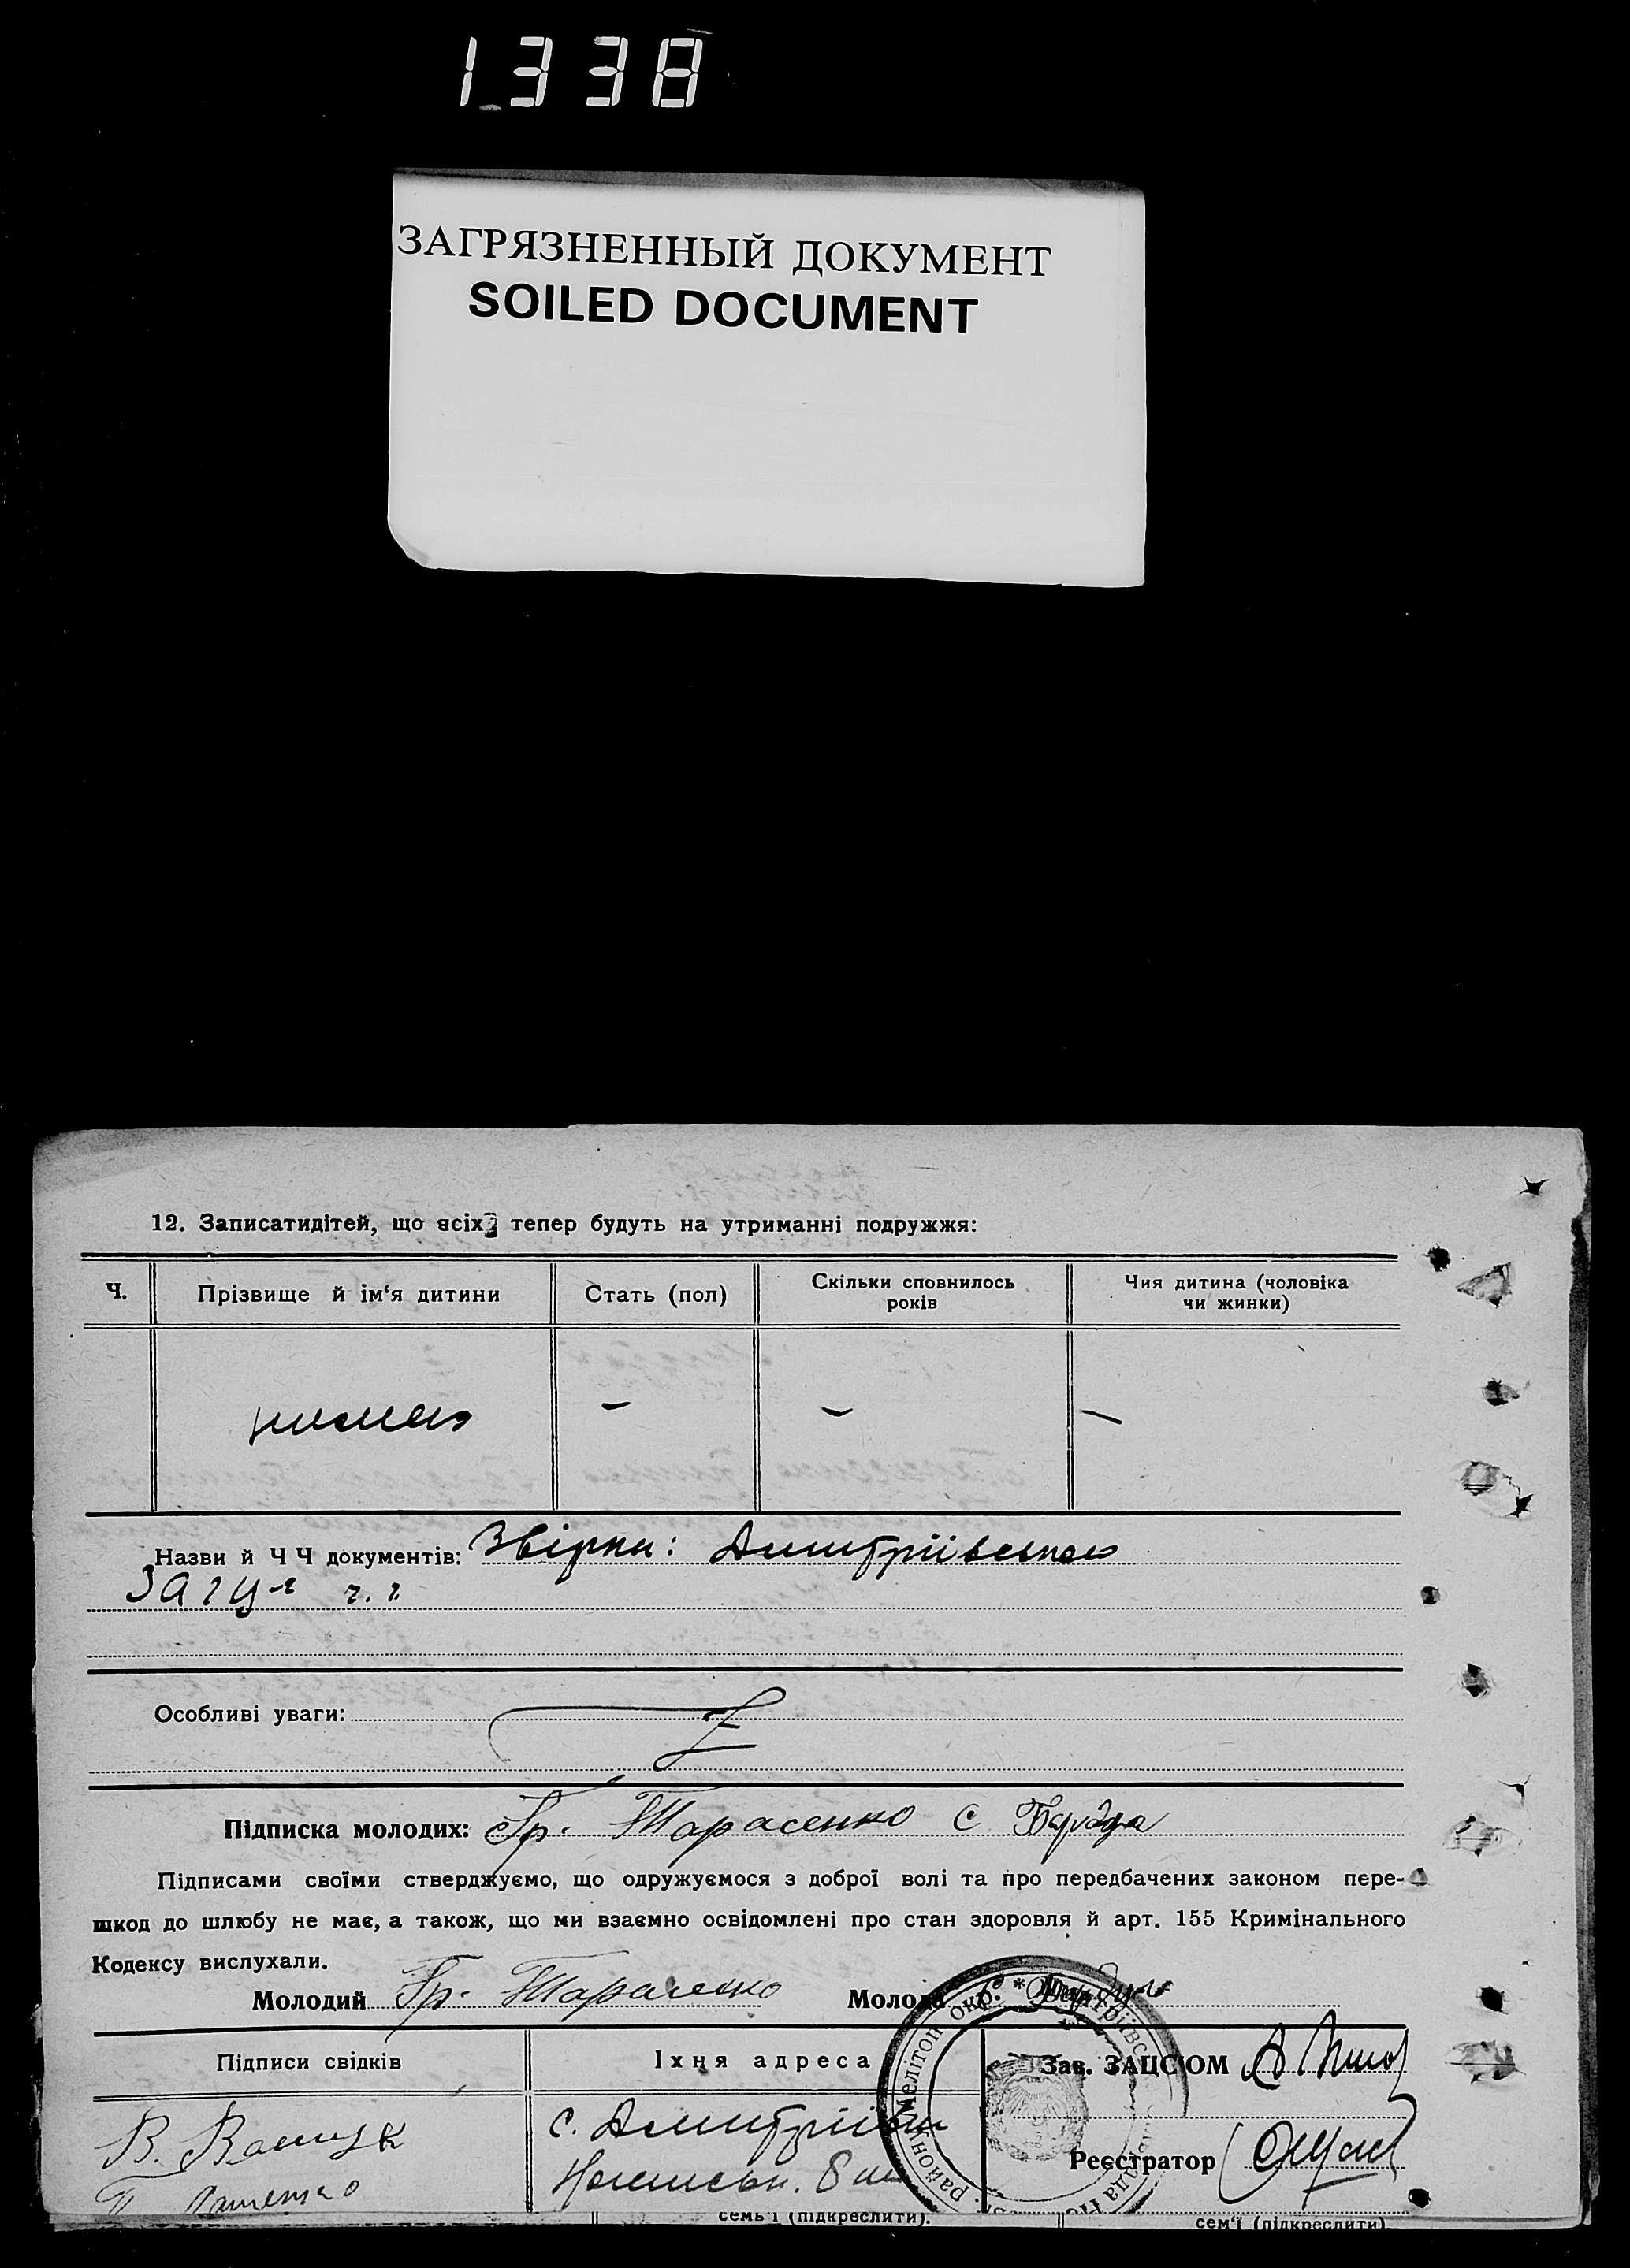 1338
ЗАГРЯЗНЕННЫЙ ДОКУМЕНТ
SOILED DOCUMENT
12. Записатидітей, що всіх тепер будуть на утриманні подружжя:
Ч.
Прізвище й ім‘я дитини
Стать (пол)
Скільки сповнилось
років
Чия дитина (чоловіка
чи жинки)
немає
–
–
–
Назви й Ч Ч документів: Звірки: Дмитріівского
ЗАГЦ
Особливі уваги:
Підписка молодих: Гр. Тарасенко С
Підписами своїми стверджуємо, що одружуємося з доброї волі та про передбачених законом пере-
шкод до шлюбу не має, а також, що ми взаємно освідомлені про стан здоровля й арт. 155 Кримінального
Кодексу вислухали.
Молодий Гр. Тарасенко Молода
Підписи свідків
Їхня адреса
Зав. ЗАЦС‘ОМ
В.
с. Дмитрівки
Реєстратор
району Мелітоп окр. * Дмитрівс
семь‘ї (підкреслити).
сем‘ї (підкреслити)